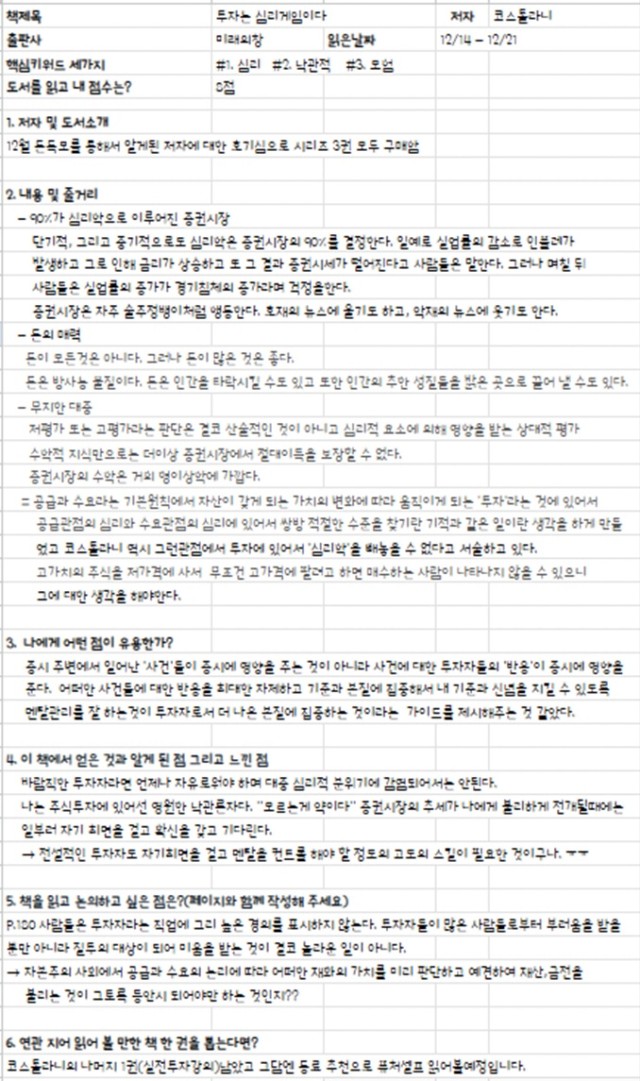 책제목 투자는 심리게임이다 저자 코스톨라니
출판사 미래의창 읽은날짜 12/14 - 12/21
핵심키워드 세가지 #1. 심리 #2. 낙관적 #3. 모험
도서를 읽고 내 점수는? 8점
1. 저자 및 도서소개
12월 돈독모를 통해서 알게된 저자에 대한 호기심으로 시리즈 3권 모두 구매함
2. 내용 및 줄거리
- 90%가 심리학으로 이루어진 증권시장
단기적, 그리고 중기적으로도 심리학은 증권시장의 90%를 결정한다. 일예로 실업률의 감소로 인플레가
발생하고 그로 인해 금리가 상승하고 또 그 결과 증권시세가 떨어진다고 사람들은 말한다. 그러나 며칠 뒤
사람들은 실업률의 증가가 경기침체의 증가라며 걱정을한다.
증권시장은 자주 술주정뱅이처럼 행동한다. 호재의 뉴스에 울기도 하고, 악재의 뉴스에 웃기도 한다.
- 돈의 매력
돈이 모든것은 아니다. 그러나 돈이 많은 것은 좋다.
돈은 방사능 물질이다. 돈은 인간을 타락시킬 수도 있고 또한 인간의 추한 성질들을 밝은 곳으로 끌어 낼 수도 있다.
- 무지한 대중
저평가 또는 고평가라는 판단은 결코 산술적인 것이 아니고 심리적 요소에 의해 영향을 받는 상대적 평가
수학적 지식만으로는 더이상 증권시장에서 절대이득을 보장할 수 없다.
증권시장의 수학은 거의 형이상학에 가깝다.
= 공급과 수요라는 기본원칙에서 자산이 갖게 되는 가치의 변화에 따라 움직이게 되는 '투자'라는 것에 있어서
공급관점의 심리와 수요관점의 심리에 있어서 쌍방 적절한 수준을 찾기란 기적과 같은 일이란 생각을 하게 만들
었고 코스톨라니 역시 그런관점에서 투자에 있어서 '심리학'을 빼놓을 수 없다고 서술하고 있다.
고가치의 주식을 저가격에 사서 무조건 고가격에 팔려고 하면 매수하는 사람이 나타나지 않을 수 있으니
그에 대한 생각을 해야한다.
3. 나에게 어떤 점이 유용한가?
증시 주변에서 일어난 '사건'들이 증시에 영향을 주는 것이 아니라 사건에 대한 투자자들의 '반응'이 증시에 영향을
준다. 어떠한 사건들에 대한 반응을 최대한 자제하고 기준과 본질에 집중해서 내 기준과 신념을 지킬 수 있도록
멘탈관리를 잘 하는것이 투자자로서 더 나은 본질에 집중하는 것이라는 가이드를 제시해주는 것 같았다.
4. 이 책에서 얻은 것과 알게 된 점 그리고 느낀 점
바람직한 투자자라면 언제나 자유로워야 하며 대중 심리적 분위기에 감염되어서는 안된다.
나는 주식투자에 있어선 영원한 낙관론자다. "모르는게 약이다" 증권시장의 추세가 나에게 불리하게 전개될때에는
일부러 자기 최면을 걸고 확신을 갖고 기다린다.
→ 전설적인 투자자도 자기최면을 걸고 멘탈을 컨트롤 해야 할 정도의 고도의 스킬이 필요한 것이구나. ㅜㅜ
5. 책을 읽고 논의하고 싶은 점은?(페이지와 함께 작성해 주세요)
P.180 사람들은 투자자라는 직업에 그리 높은 경의를 표시하지 않는다. 투자자들이 많은 사람들로부터 부러움을 받을
뿐만 아니라 질투의 대상이 되어 미움을 받는 것이 결코 놀라운 일이 아니다.
→ 자본주의 사회에서 공급과 수요의 논리에 따라 어떠한 재화의 가치를 미리 판단하고 예견하여 재산,금전을
불리는 것이 그토록 등한시 되어야만 하는 것인지??
6. 연관 지어 읽어 볼 만한 책 한 권을 뽑는다면?
코스톨라니의 나머지 1권(실전투자강의)남았고 그담엔 동료 추천으로 퓨처셀프 읽어볼예정입니다.